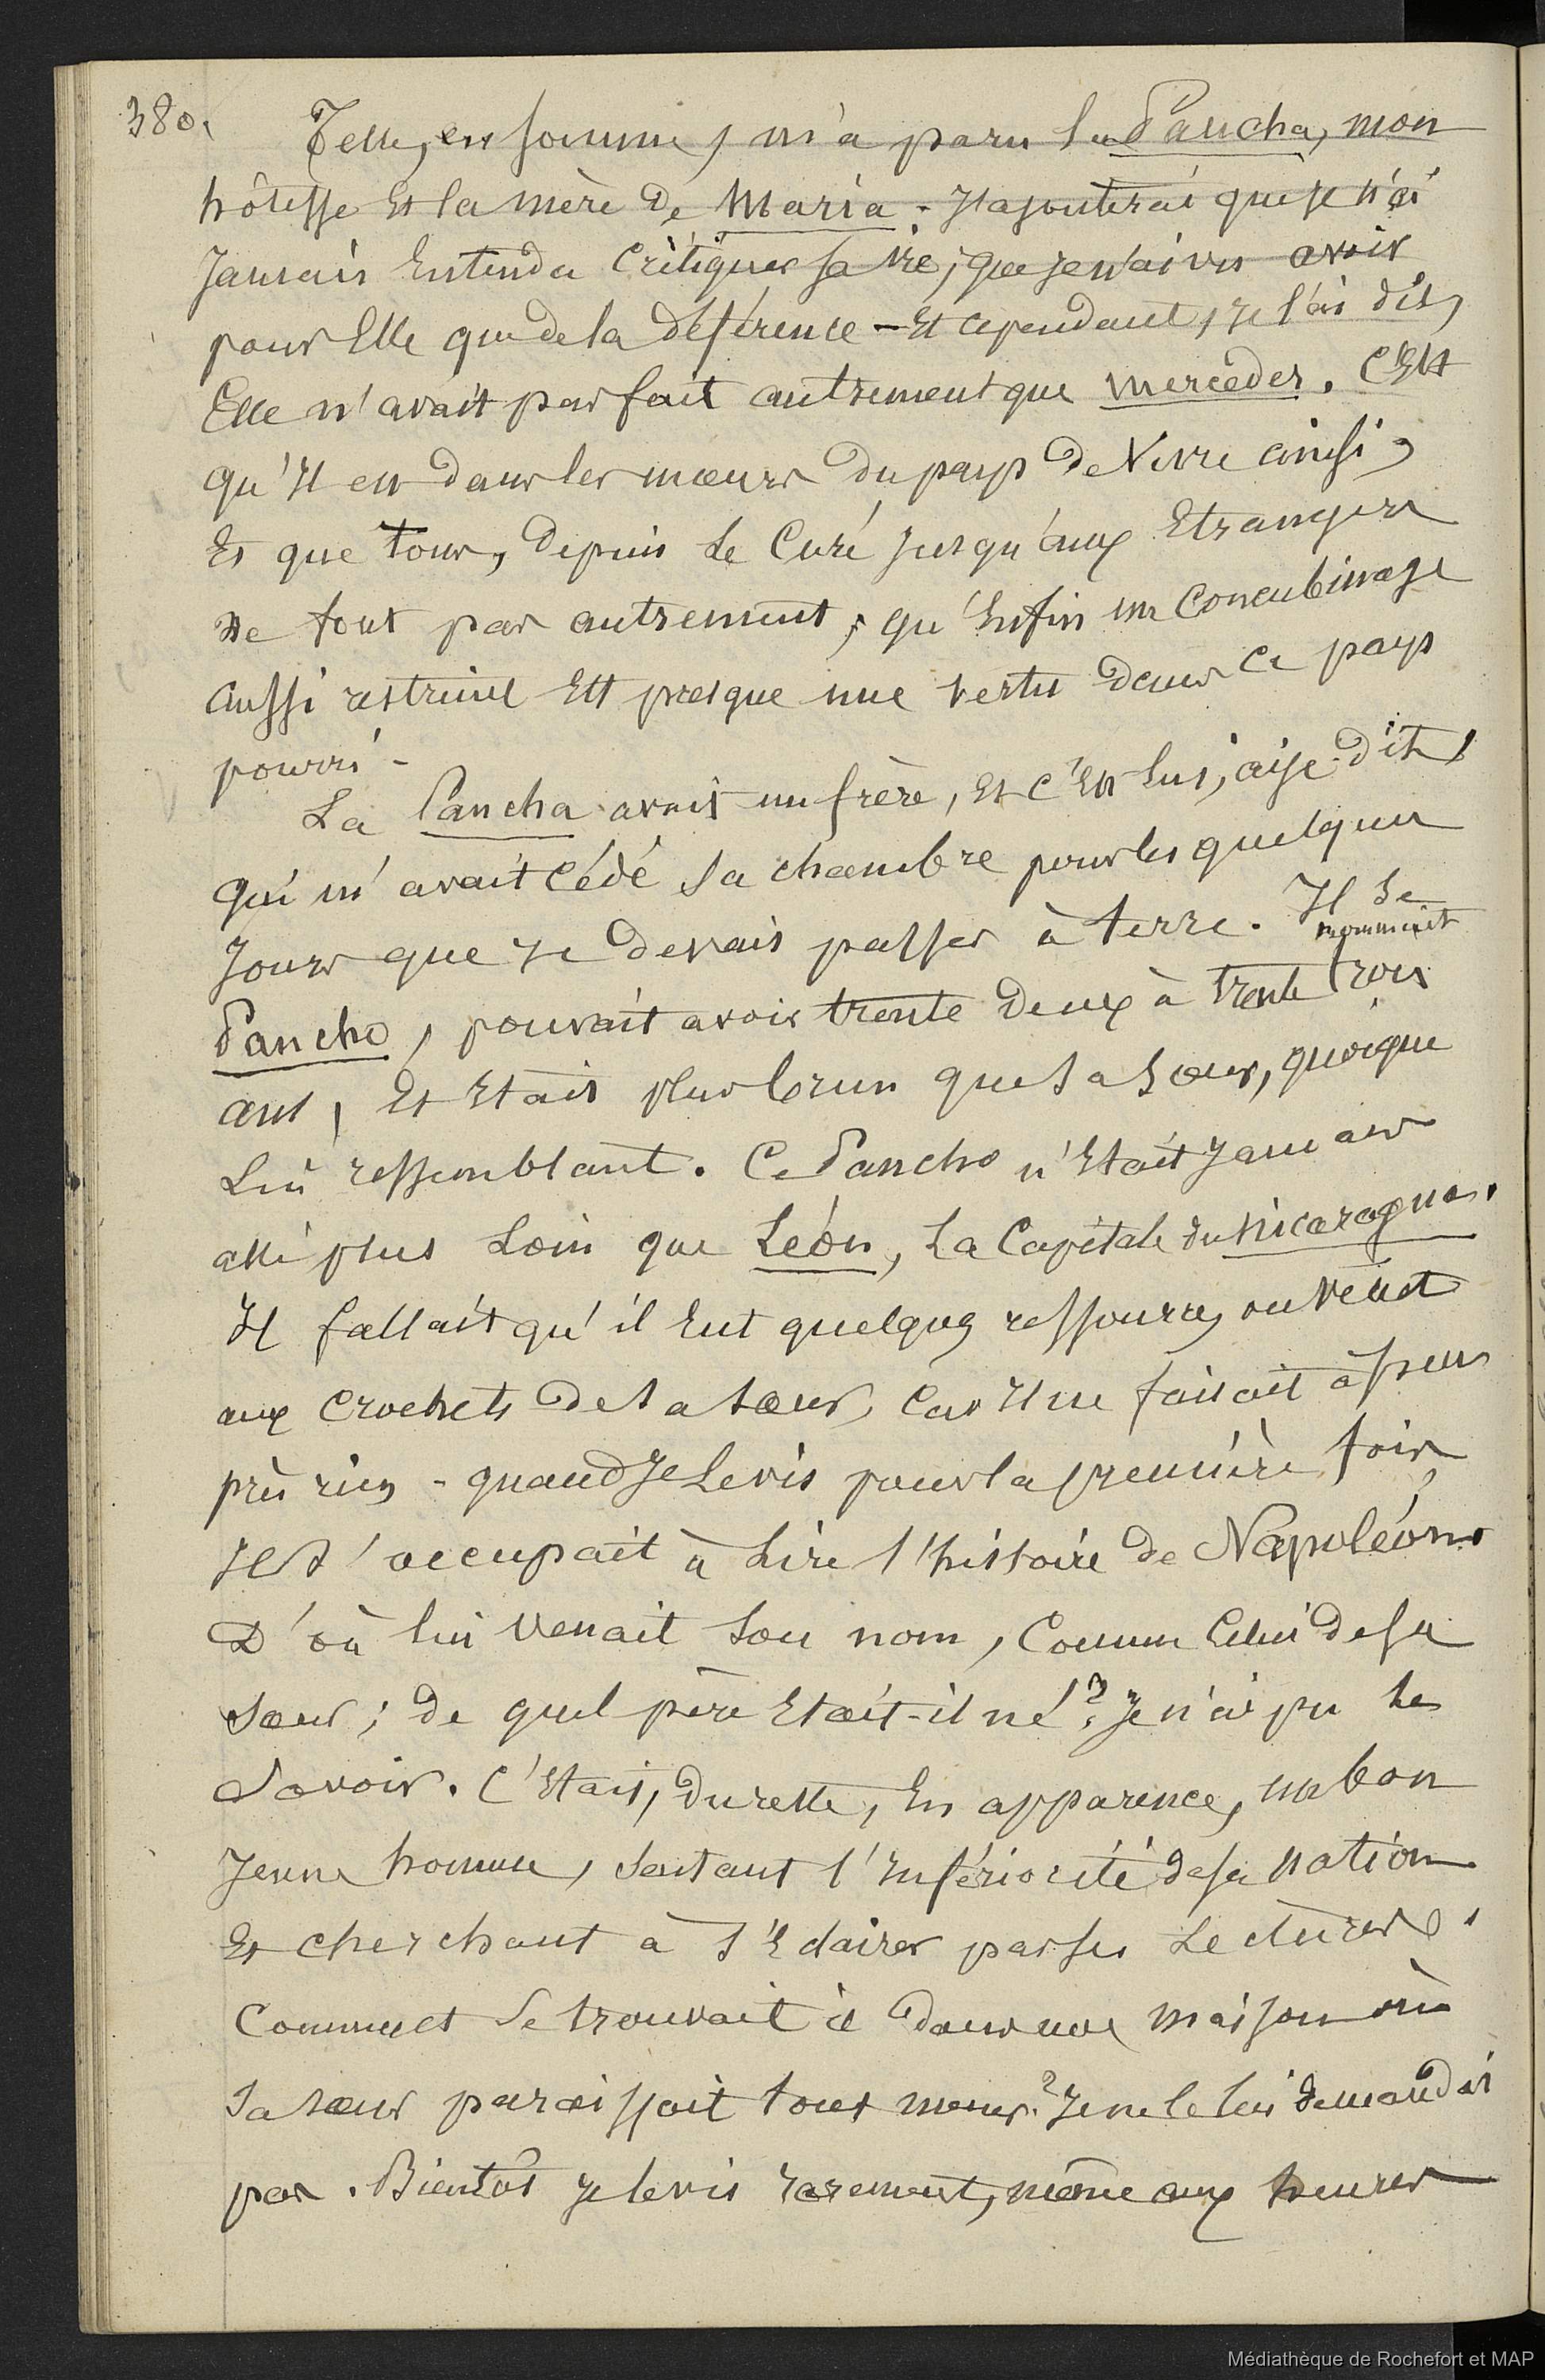 380.
Telle, en somme, m'a paru la Pancha, mon
hôtesse Et la mère de Maria - J'ajouterai que je n'ai
Jamais Entendu Critiquer sa vie, que je n'ai vu avoir
pour Elle que de la déférence - Et cependant, je l'ai dit,
Elle n'avait pas fait autrement que Mercèdes. C'Est
qu'Il est dans les mœurs du pays de Vivre ainsi,
Et que tous, depuis le Curé jusqu'aux Etrangers
ne font pas autrement, qu'Enfin un Concubinage
aussi restreint Est presque une vertu dans Ce pays
pourri -
La Pancha avait un frère, Et c'Est lui, ai-je dit,
qui m'avait Cédé sa chambre pour les quelques
Jours que je devais passer à terre. Il se
nommait
Pancho, pouvait avoir trente deux à trente trois
ans, Et Etait plus brun que sa sœur, quoique
Lui ressemblant. Ce Pancho n'Etait Jamais
allé plus Loin que Léon, La Capitale du Nicaragua.
Il fallait qu'il Eut quelques ressources, ou vécut
aux Crochets de sa sœur, Car Il ne faisait à peu
près rien - quand Je Le vis pour la première fois,
Il s'occupait à Lire l'histoire de Napoléon.
D'où lui Venait Son nom, Comme Celui de sa
sœur ; de quel père Etait-il né ? Je n'ai pu le
Savoir. C'Etait, du reste, En apparence, un bon
Jeune homme, Sentant l'Infériorité de sa Nation
Et cherchant à s'Eclairer par ses Lectures.
Comment Se trouvait il dans une Maison où
Sa sœur paraissait tout mener ? Je ne le lui demandai
pas. Bientôt je le vis rarement, même aux heures
Médiathèque de Rochefort et MAP